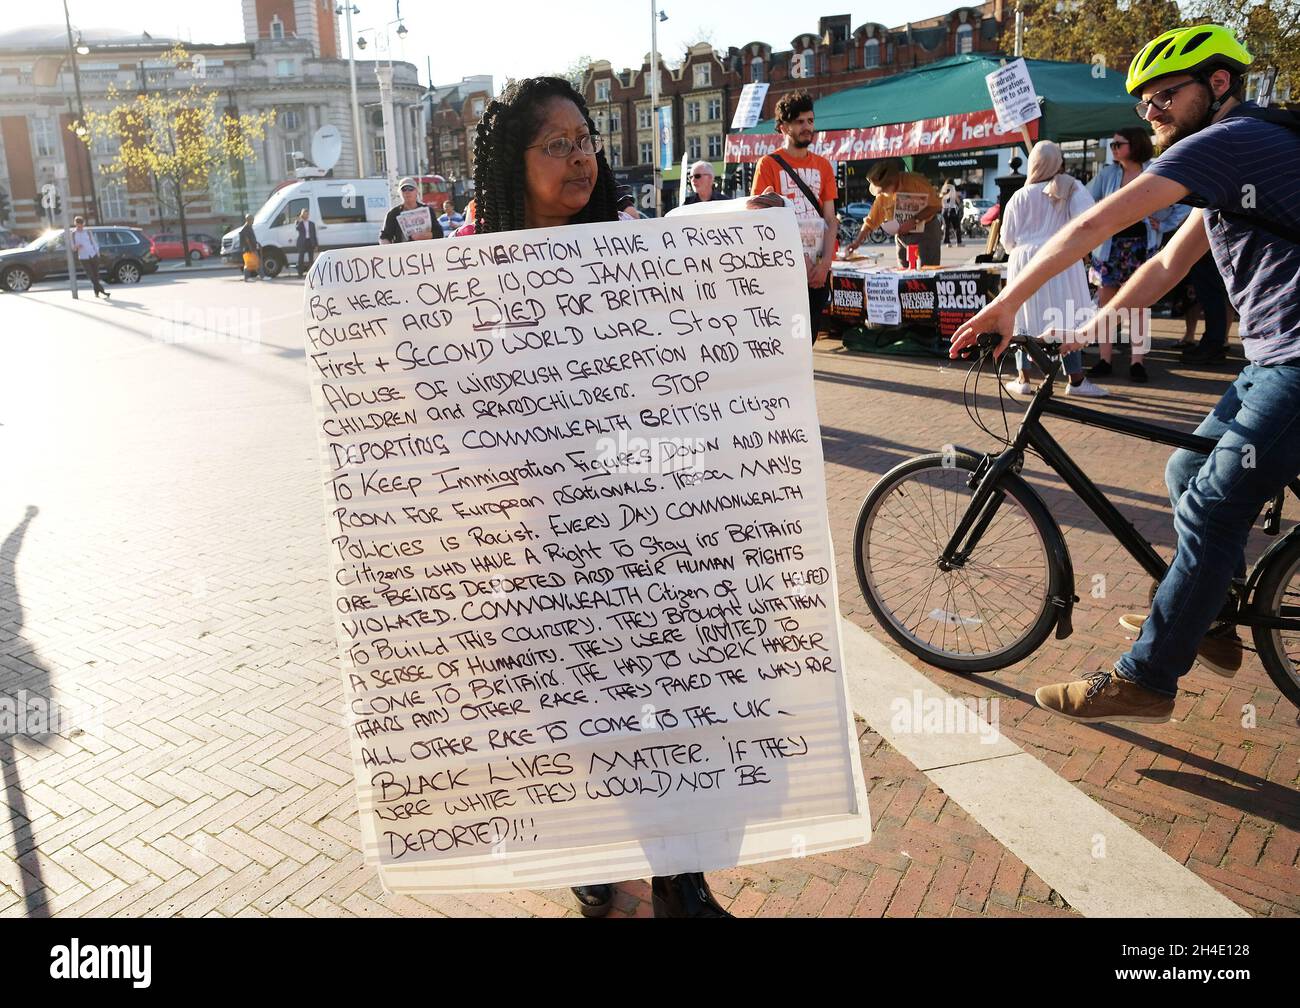 WINDRUSH GENERATION HAVE A RIGHT TO
BE HERE. OVER 10,000 JAMAICAN SOLDIERS
FOUGHT AND DIED FOR BRITAIN IN THE
FIRST + SECOND WORLD WAR. STOP THE
ABUSE OF WINDRUSH GENERATION AND THEIR
CHILDREN AND GRANDCHILDREN. STOP
DEPORTING COMMONWEALTH BRITISH CITIZEN
TO KEEP IMMIGRATION FIGURES DOWN AND MAKE
ROOM FOR EUROPEAN NATIONALS. THERESA MAY'S
POLICIES IS RACIST. EVERY DAY COMMONWEALTH
CITIZENS WHO HAVE A RIGHT TO STAY IN BRITAIN
ARE BEING DEPORTED AND THEIR HUMAN RIGHTS
VIOLATED. COMMONWEALTH CITIZEN OF UK HELPED
TO BUILD THIS COUNTRY. THEY BROUGHT WITH THEM
A SENSE OF HUMANITY. THEY WERE INVITED TO
COME TO BRITAIN. THE HAD TO WORK HARDER
THAN ANY OTHER RACE. THEY PAVED THE WAY FOR
ALL OTHER RACE TO COME TO THE UK.
BLACK LIVES MATTER. IF THEY
WERE WHITE THEY WOULD NOT BE
DEPORTED!!!
Socialist Worker
Windrush
Generation:
Here to stay
Join the Socialist Workers Party here
McDonald's
REFUGEES
WELCOME
Windrush
Generation:
Here to stay
REFUGEES
WELCOME
Socialist Worker
NO TO
RACISM
alamy
Image ID: 2H4E128
www.alamy.com